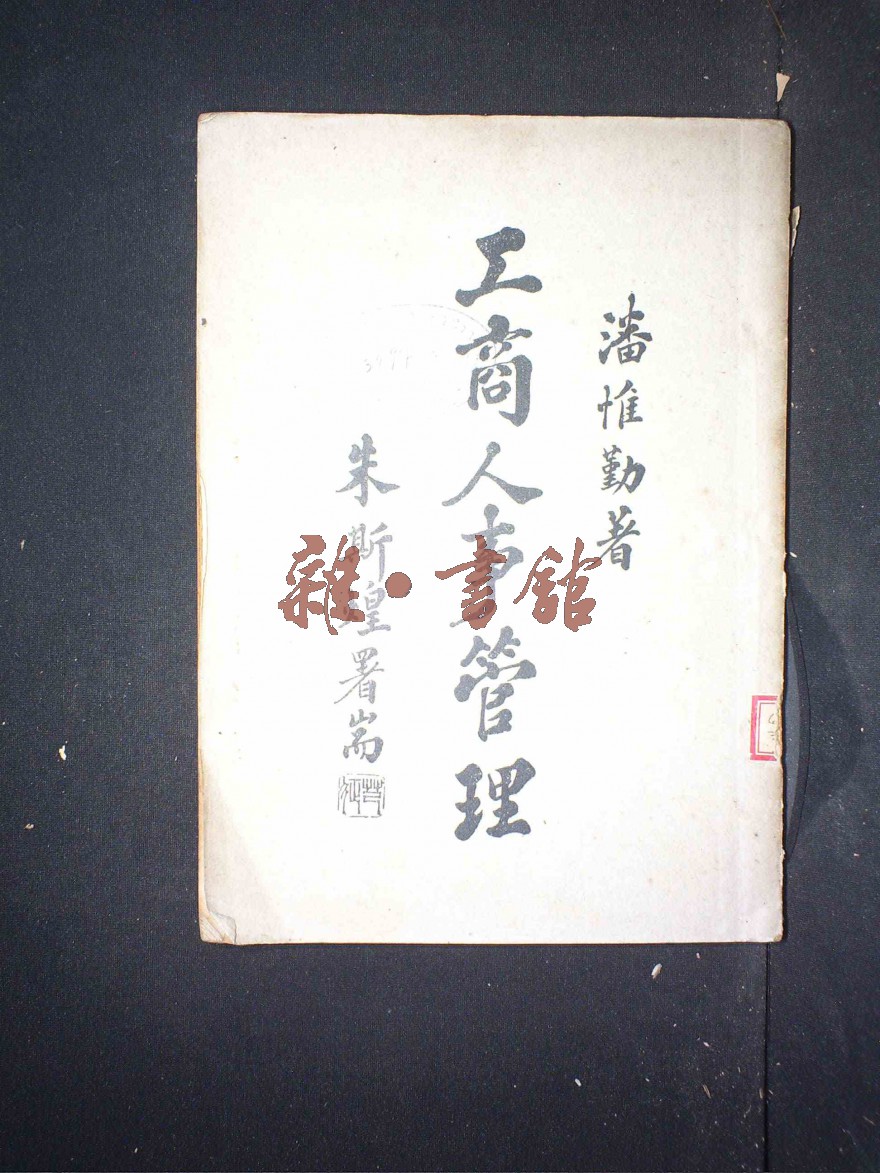 潘惟勤著
工商人事管理
朱斯煌署耑
雜·書館